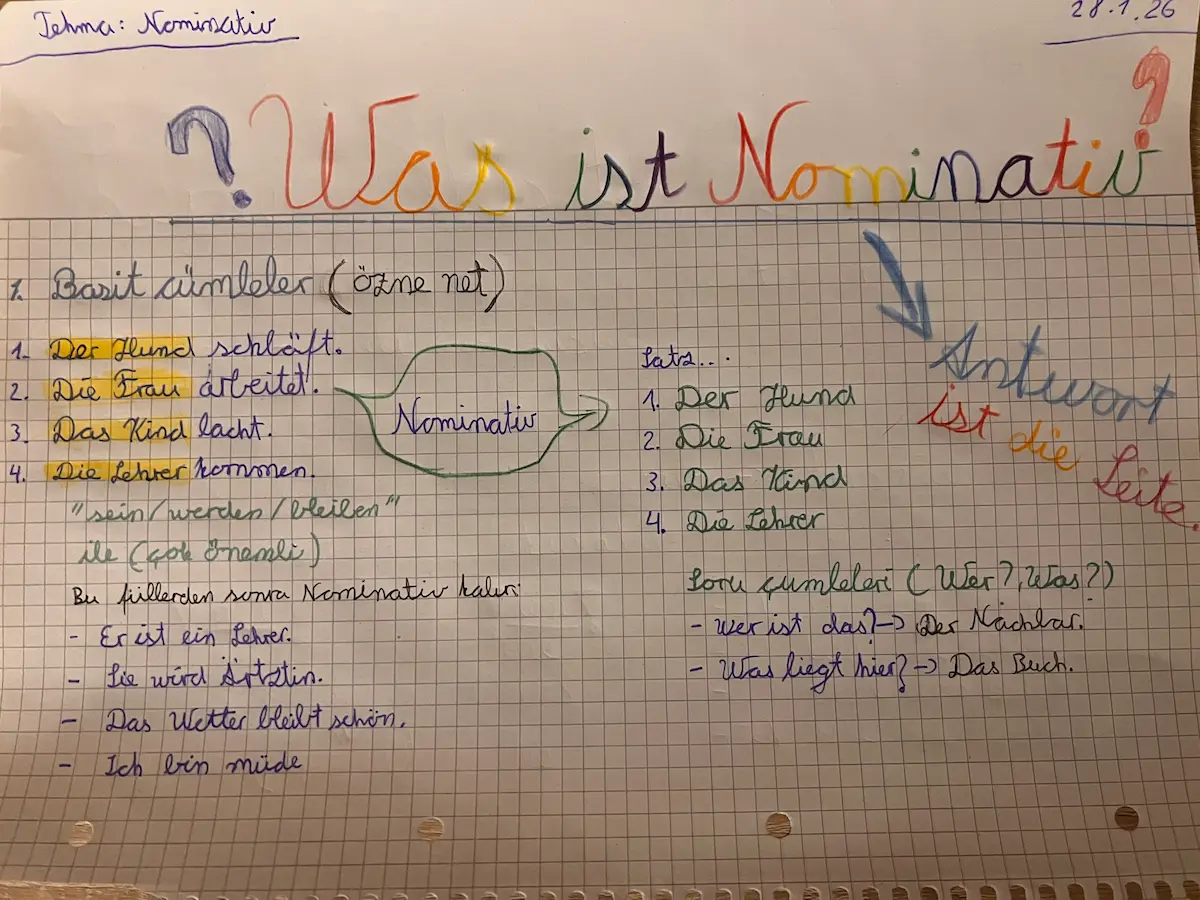 Tehma: Nominativ
28.1.26
? Was ist Nominativ?
1. Basit cümleler (özne net)
1. Der Hund schläft.
2. Die Frau arbeitet.
3. Das Kind lacht.
4. Die Lehrer kommen.
"sein/werden/bleiben"
ile (çok önemli)
Bu fiillerden sonra Nominativ kalır:
- Er ist ein Lehrer.
- Sie wird Ärtztin.
- Das Wetter bleibt schön.
- Ich bin müde
Nominativ
Satz...
1. Der Hund
2. Die Frau
3. Das Kind
4. Die Lehrer
Antwort
ist die Seite.
Soru çumleleri (Wer?, Was?)
- wer ist das? -> Der Nachbar.
- Was liegt hier? -> Das Buch.